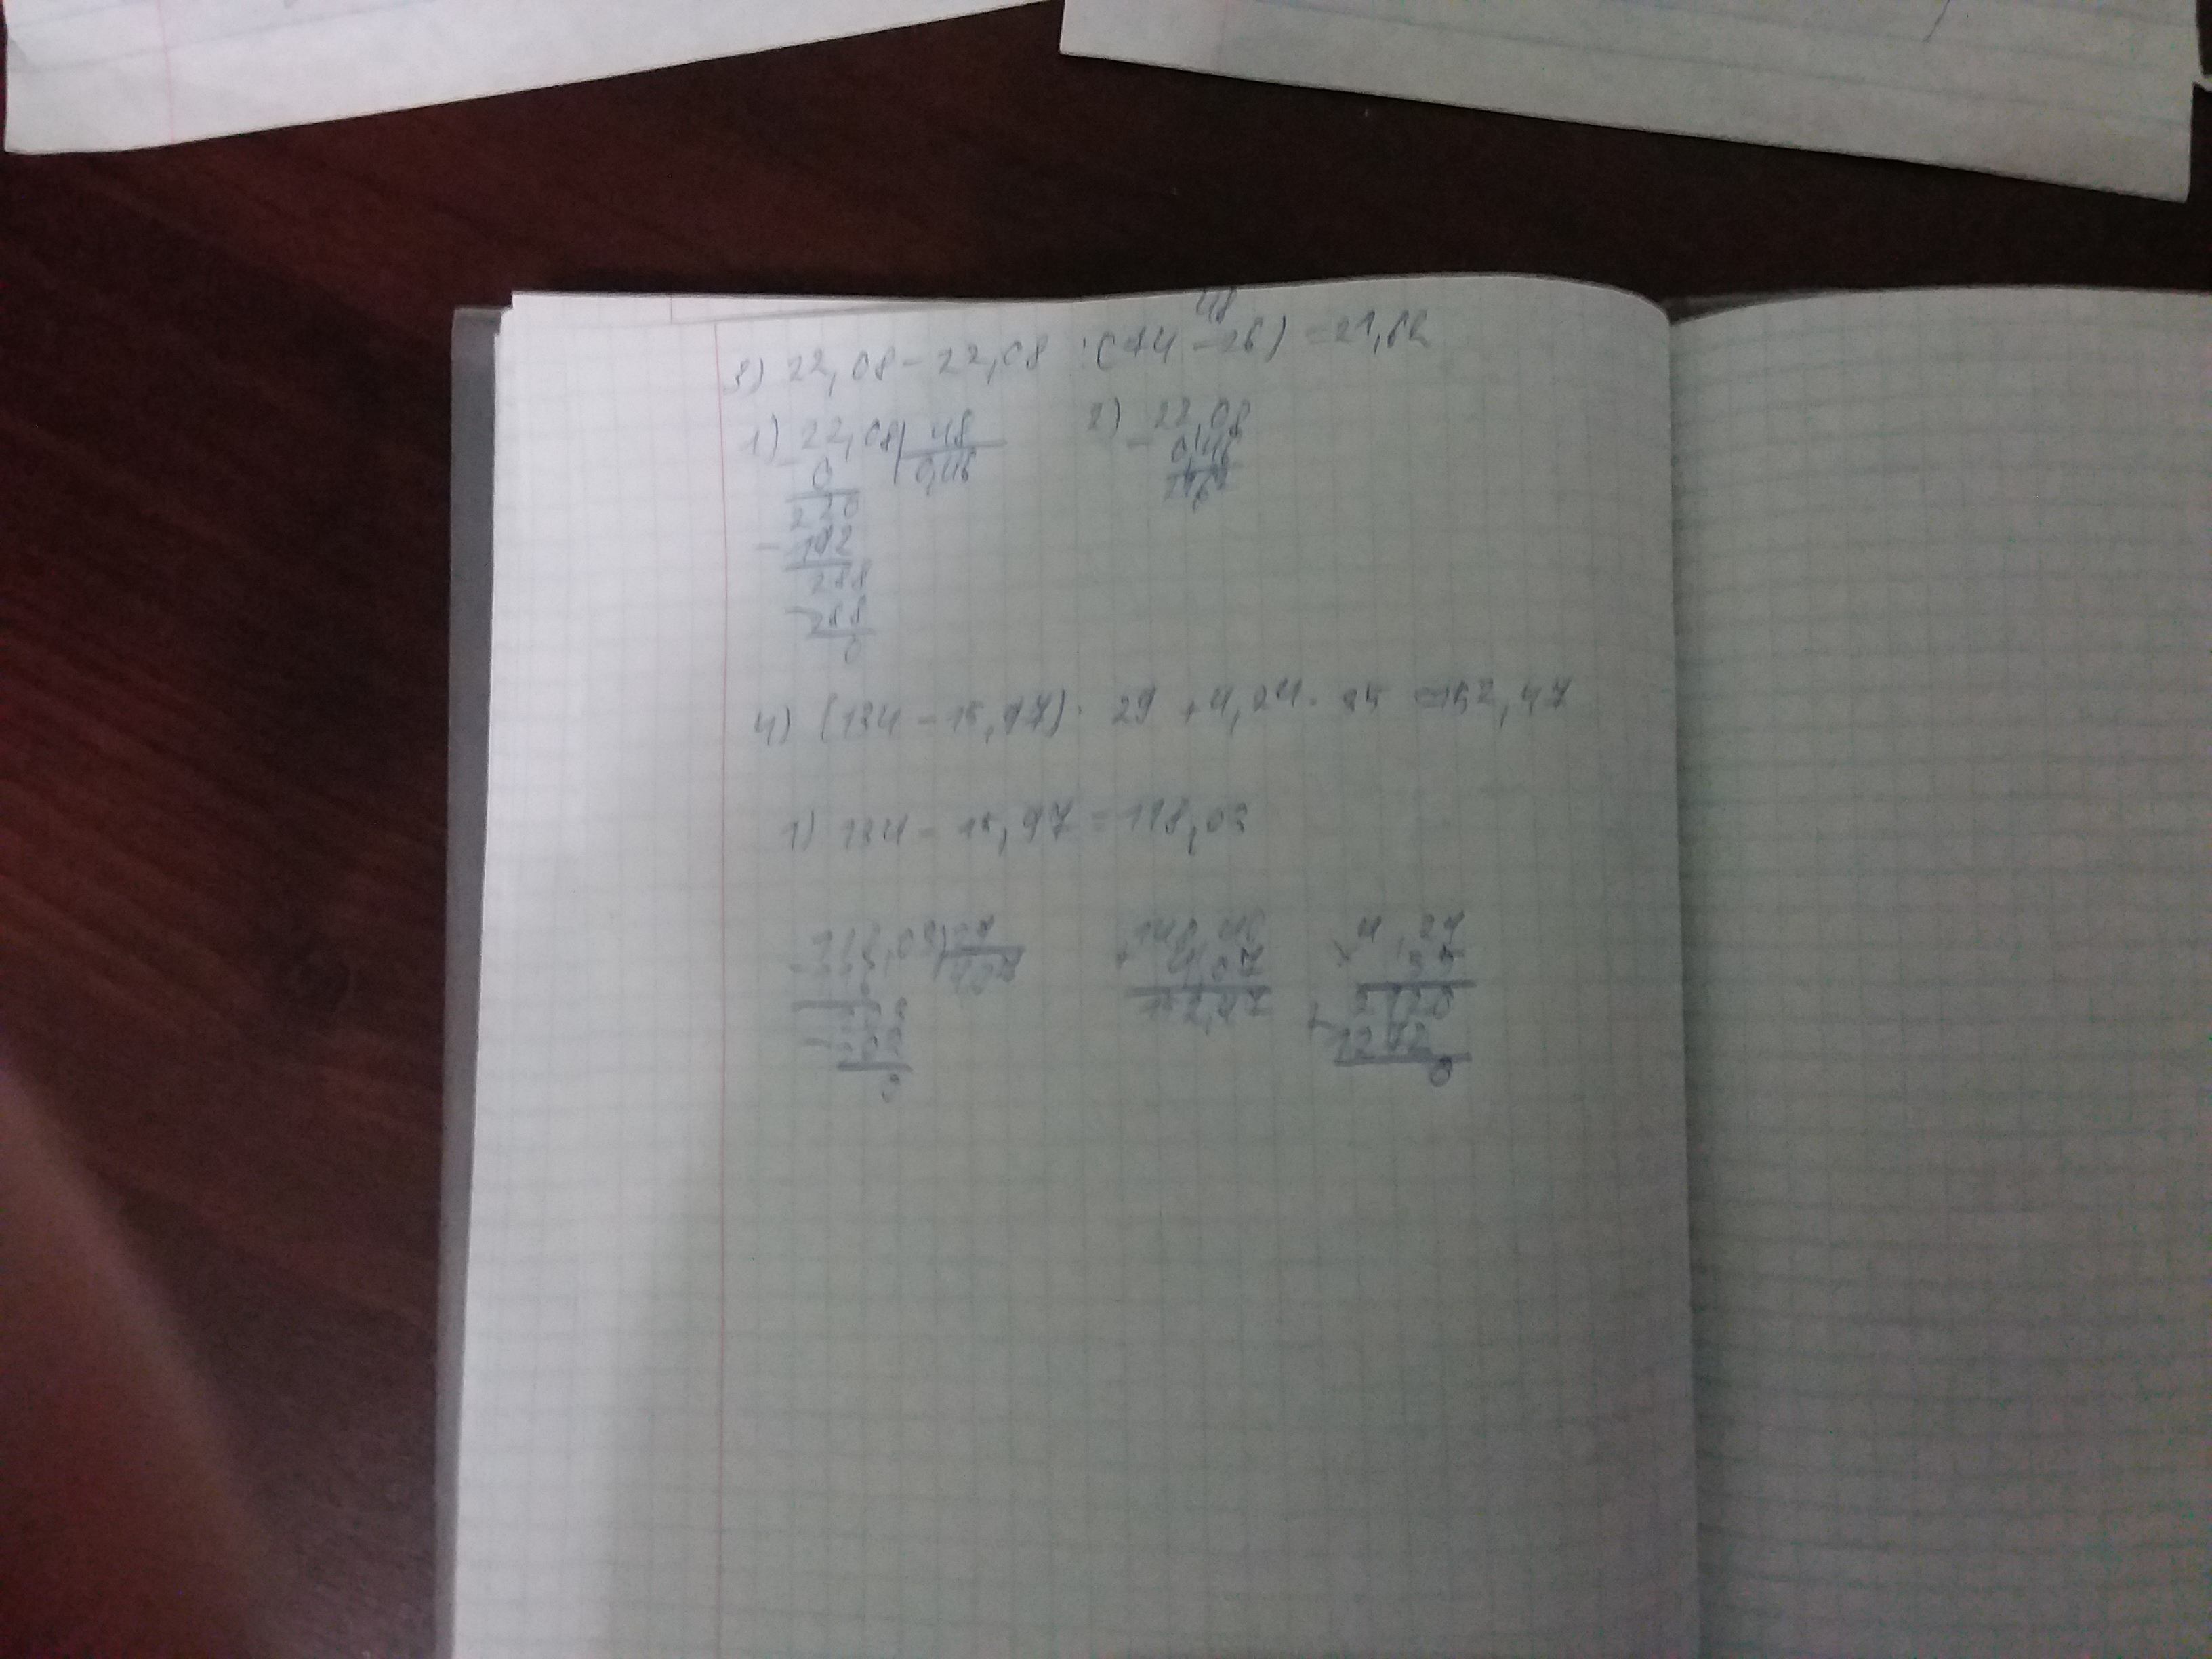 3) 22,08 - 22,08 : (74 - 26) = 21,62
48
1) 22,08 | 48
- 0 0,46
220
- 192
288
- 288
0
2) 22,08
- 0,46
21,62
4) (134 - 15,97) : 29 + 4,24 · 35 = 152,47
1) 134 - 15,97 = 118,03
118,03 | 29
0
+ 148,40
4,07
152,47
× 4,24
35
+ 2120
1272
0